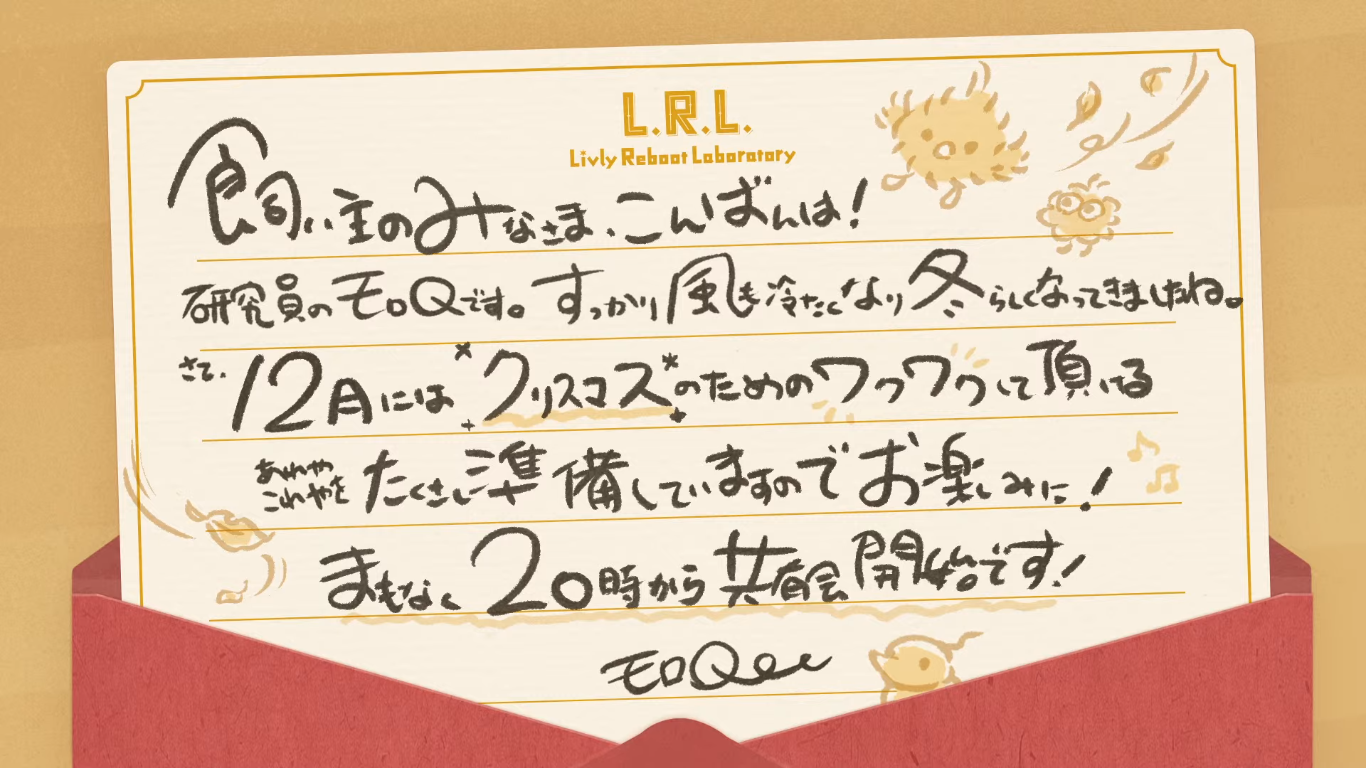 L.R.L.
Livly Reboot Laboratory
飼い主のみなさま、こんばんは!
研究員のモロQです。すっかり風も冷たくなり冬らしくなってきましたね。
さて、12月にはクリスマスのためのワクワクして頂ける
あれやこれやをたくさん準備していますのでお楽しみに!
まもなく20時から共有会開始です!
モロQ